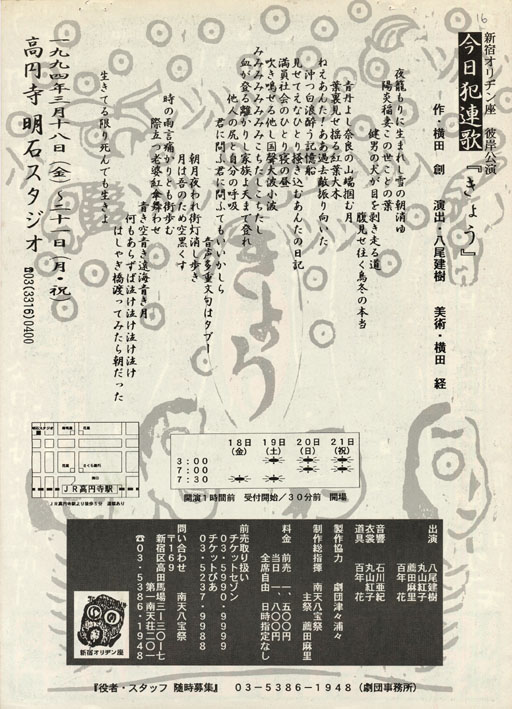 16
新宿オリヂン座 彼岸公演
今日犯連歌『きょう』
作・横田 創 演出・八尾建樹 美術・横田 経
夜籠もりに生まれし雪の朝消ゆ
陽炎稲妻この世ことの葉
健男の犬が目を剥き走る道
腹見せ往く鳥冬の本当
青丹よし奈良の山端掴む月
葉裏見せ揺る紅葉大木
ねえあんたああ過去敵振り向いた
沖つ白浪酔う記憶船
見せてえなひとり掻き込むあんたの日記
満員社会のひとり寝の昼
吹き鳴せる他し国声大波小波
みみみみみみみこたちしこちたし
血が登る離かりし家族よ天まで登れ
他人の尻と自分の呼吸
君に問ふ君に問ふてもいいかしら
音声多重文句はタブー
朝月夜われ街灯消し歩き
月は吾のため空黒くす
時の雨言痛かりとも街歩む
際立つ老婆紅傘舞わせ
青き空青き遠海青き月
何もあらずば泣け泣け泣け泣け
はしゃぎ橋渡ってみたら朝だった
生きてる限り死んでも生きよ
一九九四年三月十八日(金)～二十一日(月・祝)
高円寺 明石スタジオ ☎03(3316)0400
きょう
18日(金) 19日(土) 20日(日) 21日(祝)
3:00
7:00
7:30
開演1時間前 受付開始／30分前 開場
JR高円寺駅
JR高円寺駅より徒歩5分
出演 八尾建樹
丸山紅子
薦田麻里
百年 花
音響 石川亜紀
衣裳 丸山紅子
道具 百年 花
製作協力 劇団津々浦々
制作総指揮 南天八宝祭
主祭 薦田麻里
料金 前売 一、五〇〇円
当日 一、八〇〇円
全席自由 日時指定なし
前売取り扱い
チケットセゾン
03・5990・9999
チケットぴあ
03・5237・9988
問い合わせ 南天八宝祭
〒169
新宿区高田馬場3ー30ー7
第一南天荘二〇一
☎03・5386・1948
新宿オリヂン座
『役者・スタッフ 随時募集』 03－5386－1948（劇団事務所）